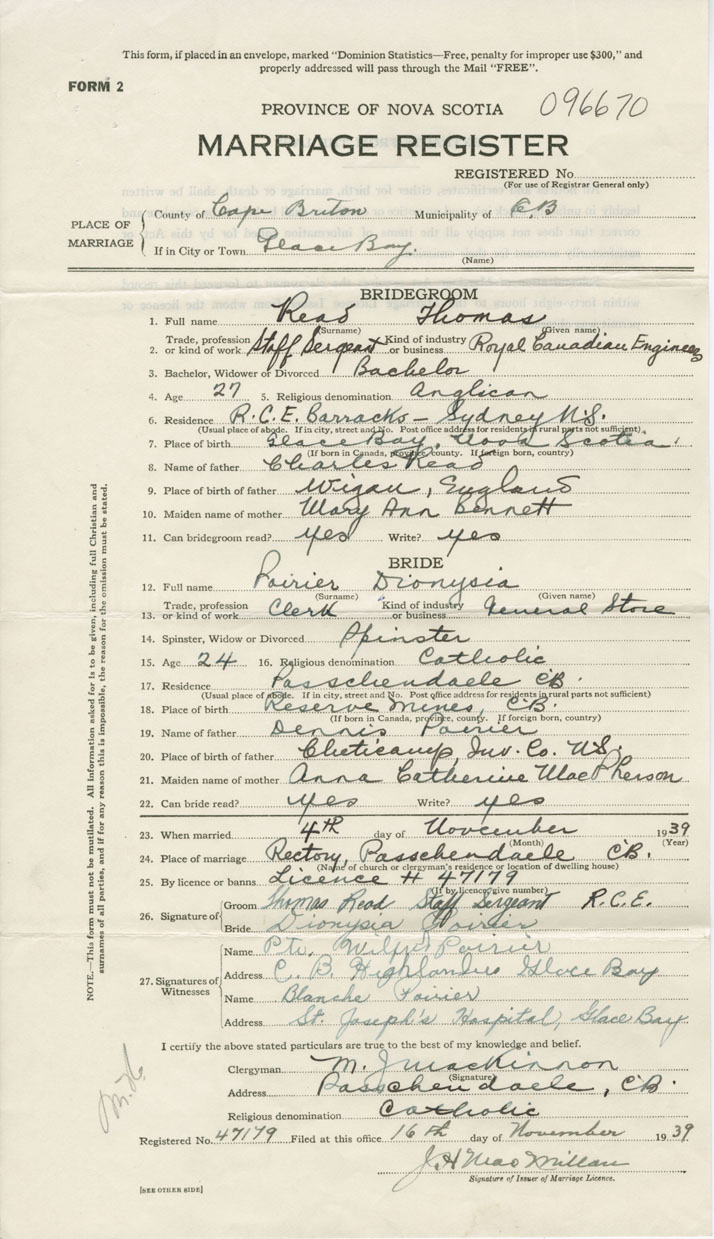 This form, if placed in an envelope, marked "Dominion Statistics—Free, penalty for improper use $300," and
properly addressed will pass through the Mail "FREE".
FORM 2
PROVINCE OF NOVA SCOTIA 096670
MARRIAGE REGISTER
REGISTERED No.
(For use of Registrar General only)
PLACE OF MARRIAGE
County of Cape Briton Municipality of C.B
If in City or Town Glace Bay.
(Name)
BRIDEGROOM
1. Full name Read Thomas
(Surname) (Given name)
2. Trade, profession or kind of work Staff Sergeant Kind of industry or business Royal Canadian Engineers
3. Bachelor, Widower or Divorced Bachelor
4. Age 27 5. Religious denomination Anglican
6. Residence R.C.E. Barracks – Sydney N.S.
(Usual place of abode. If in city, street and No. Post office address for residents in rural parts not sufficient)
7. Place of birth Glace Bay, Nova Scotia
(If born in Canada, province, county. If foreign born, country)
8. Name of father Charles Read
9. Place of birth of father Wigan, England
10. Maiden name of mother Mary Ann Bennett
11. Can bridegroom read? yes Write? yes
BRIDE
12. Full name Poirier Dionysia
(Surname) (Given name)
13. Trade, profession or kind of work Clerk Kind of industry or business General Store
14. Spinster, Widow or Divorced Spinster
15. Age 24 16. Religious denomination Catholic
17. Residence Passchendaele C.B.
(Usual place of abode. If in city, street and No. Post office address for residents in rural parts not sufficient)
18. Place of birth Reserve Mines, C.B.
(If born in Canada, province, county. If foreign born, country)
19. Name of father Dennis Poirier
20. Place of birth of father Cheticamp, Inv. Co. N.S.
21. Maiden name of mother Anna Catherine MacPherson
22. Can bride read? yes Write? yes
23. When married 4th day of November 1939
(Month) (Year)
24. Place of marriage Rectory, Passchendaele C.B.
(Name of church or clergyman's residence or location of dwelling house)
25. By licence or banns Licence # 47179
(If by licence, give number)
26. Signature of
Groom Thomas Read Staff Sergeant R.C.E.
Bride Dionysia Poirier
27. Signatures of Witnesses
Name Pte. Wilfred Poirier
Address C. B. Highlanders Glace Bay
Name Blanche Poirier
Address St. Joseph's Hospital, Glace Bay
I certify the above stated particulars are true to the best of my knowledge and belief.
Clergyman M. J MacKinnon
(Signature)
Address Passchendaele, C.B.
Religious denomination Catholic
Registered No. 47179 Filed at this office 16th day of November 1939
J. H MacMillan
Signature of Issuer of Marriage Licence.
[SEE OTHER SIDE]
NOTE.—This form must not be mutilated. All information asked for is to be given, including full Christian and
surnames of all parties, and if for any reason this is impossible, the reason for the omission must be stated.